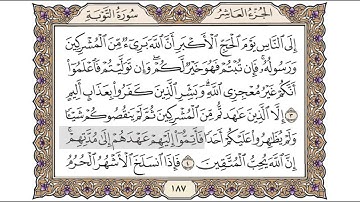 الجزء العاشر
سورة التوبة
إِلَى النَّاسِ يَوْمَ الْحَجِّ الْأَكْبَرِ أَنَّ اللَّهَ بَرِيءٌ مِّنَ الْمُشْرِكِينَ
وَرَسُولُهُ ۚ فَإِن تُبْتُمْ فَهُوَ خَيْرٌ لَّكُمْ ۖ وَإِن تَوَلَّيْتُمْ فَاعْلَمُوا
أَنَّكُمْ غَيْرُ مُعْجِزِي اللَّهِ ۗ وَبَشِّرِ الَّذِينَ كَفَرُوا بِعَذَابٍ أَلِيمٍ
٣ إِلَّا الَّذِينَ عَاهَدتُّم مِّنَ الْمُشْرِكِينَ ثُمَّ لَمْ يَنقُصُوكُمْ شَيْئًا
وَلَمْ يُظَاهِرُوا عَلَيْكُمْ أَحَدًا فَأَتِمُّوا إِلَيْهِمْ عَهْدَهُمْ إِلَىٰ مُدَّتِهِمْ ۚ
إِنَّ اللَّهَ يُحِبُّ الْمُتَّقِينَ ٤ فَإِذَا انسَلَخَ الْأَشْهُرُ الْحُرُمُ
١٨٧